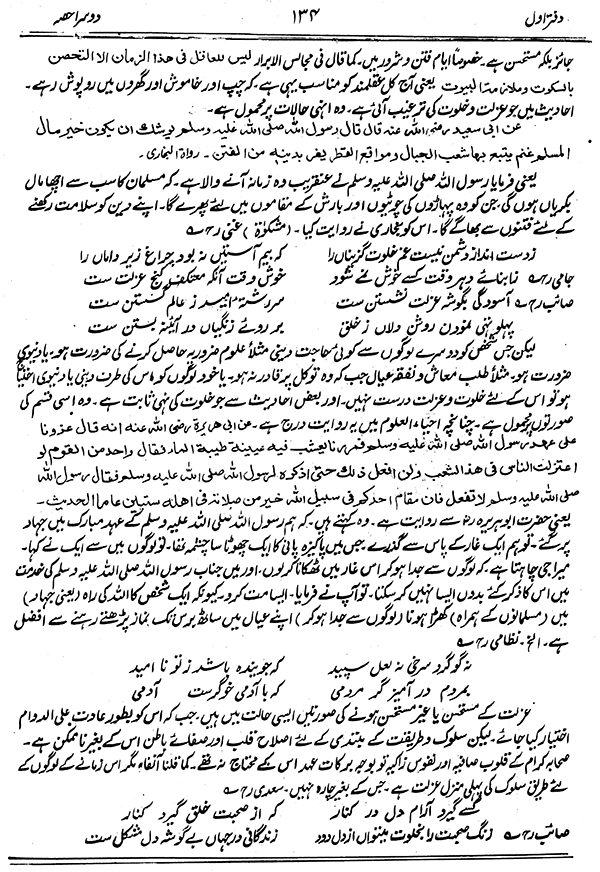 دفتر اول ۱۳۴ دوسرا حصہ
جائز بلکہ مستحسن ہے۔ خصوصاً ایام فتن و شرور میں۔ کما قال فی مجالس الابرار لیس للعاقل فی ھذا الزمان الا التحصن
بالسکوت وملازمة البیوت یعنی آج کل عقلمند کو مناسب یہی ہے۔ کہ چپ اور خاموش اور گھروں میں روپوش رہے۔
احادیث میں جو عزلت و خلوت کی ترغیب آئی ہے۔ وہ انہی حالات پر محمول ہے۔
عن ابی سعید رضی اللہ عنہ قال قال رسول اللہ صلی اللہ علیہ وسلم یوشك ان یکون خیر مال
المسلم غنم یتبع بھا شعب الجبال و مواقع القطر یفر بدینہ من الفتن۔ رواہ البخاری۔
یعنی فرمایا رسول اللہ صلی اللہ علیہ وسلم نے عنقریب وہ زمانہ آنے والا ہے۔ کہ مسلمان کا سب سے اچھا مال
بکریاں ہوں گی، جن کو وہ پہاڑوں کی چوٹیوں اور بارش کے مقاموں میں لئے پھرے گا۔ اپنے دین کو سلامت رکھنے
کے لئے فتنوں سے بھاگے گا۔ اس کو بخاری نے روایت کیا۔ (مشکوٰۃ) غنی رح؎
ز دست انداز دشمن نیست غم خلوت گزیناں را کہ بیم آستیں نہ بود چراغ زیر داماں را
جامی رح؎ ز ابنائے دہر وقت کسے خوش نمے شود خوش وقت آنکہ معتکف کنج عزلت ست
صائب رح؎ آسودگی بگوشہ عزلت نشستن ست سر رشتہ امید ز عالم گسستن ست
پہلو تہی نمودن روشن دلاں ز خلق بر روئے زنگیاں در آئینہ بستن ست
لیکن جس شخص کو دوسرے لوگوں سے کوئی حاجت دینی مثلاً علوم ضروریہ حاصل کرنے کی ضرورت ہو۔ یا دنیوی
ضرورت ہو۔ مثلاً طلب معاش و نفقہ عیال جب کہ وہ توکل پر قادر نہ ہو۔ یا خود لوگوں کو اس کی طرف دینی یا دنیوی احتیاج
ہو تو اس کے لئے خلوت و عزلت درست نہیں۔ اور بعض احادیث سے جو خلوت کی نہی ثابت ہے۔ وہ اسی قسم کی
صورتوں پر محمول ہے۔ چنانچہ احیاء العلوم میں یہ روایت درج ہے۔ عن ابی ھریرة رضی اللہ عنہ انہ قال غزونا
علی عھد رسول اللہ صلی اللہ علیہ وسلم فمررنا بشعب فیہ عیینة طیبة الماء فقال واحد من القوم لو
اعتزلت الناس فی ھذا الشعب ولن افعل ذلك حتی اذکرہ لرسول اللہ صلی اللہ علیہ وسلم فقال رسول اللہ
صلی اللہ علیہ وسلم لا تفعل فان مقام احدکم فی سبیل اللہ خیر من صلاتہ فی اھلہ ستین عاما الحدیث۔
یعنی حضرت ابو ہریرہ رضہ سے روایت ہے۔ وہ کہتے ہیں۔ کہ ہم رسول اللہ صلی اللہ علیہ وسلم کے عہد مبارک میں جہاد
پر گئے۔ تو ہم ایک غار کے پاس سے گذرے جس میں پاکیزہ پانی کا ایک چھوٹا سا چشمہ تھا۔ تو لوگوں میں سے ایک نے کہا۔
میرا جی چاہتا ہے کہ لوگوں سے جدا ہو کر اس غار میں ٹھکانا کروں۔ اور میں جناب رسول اللہ صلی اللہ علیہ وسلم کی خدمت
میں اس کا ذکر کئے بدوں ایسا نہیں کر سکتا۔ تو آپ نے فرمایا۔ ایسا مت کرو۔ کیونکہ ایک شخص کا اللہ کی راہ (یعنی جہاد)
میں (مسلمانوں کے ہمراہ) کھڑا ہونا (لوگوں سے جدا ہو کر) اپنے عیال میں ساٹھ برس تک نماز پڑھتے رہنے سے افضل
ہے۔ الخ۔ نظامی رح؎
نہ گوگرد سرخی نہ لعل سپید کہ جوینده باشد ز تو نا امید
بمردم در آمیز گر مردمی کہ با آدمی خوگرست آدمی
عزلت کے مستحسن یا غیر مستحسن ہونے کی صورتیں ایسی حالت میں ہیں۔ جب کہ اس کو بطور عادت علی الدوام
اختیار کیا جائے۔ لیکن سلوک و طریقت کے مبتدی کے لئے اصلاح قلب اور صفائے باطن اس کے بغیر ناممکن ہے۔
صحابہ کرام کے قلوب صافیہ اور نفوس زاکیہ تو بوجہ برکات عہد اس کے محتاج نہ تھے۔ کما قلنا آنفاً۔ مگر اس زمانے کے لوگوں کے
لئے طریق سلوک کی پہلی منزل عزلت ہے۔ جس کے بغیر چارہ نہیں۔ سعدی رح؎
کسے گیرد آرام دل در کنار کہ از صحبت خلق گیرد کنار
صائب رح؎ زنگ صحبت را بخلوت میتواں از دل زدود زندگانی در جہاں بے گوشہ دل مشکل ست